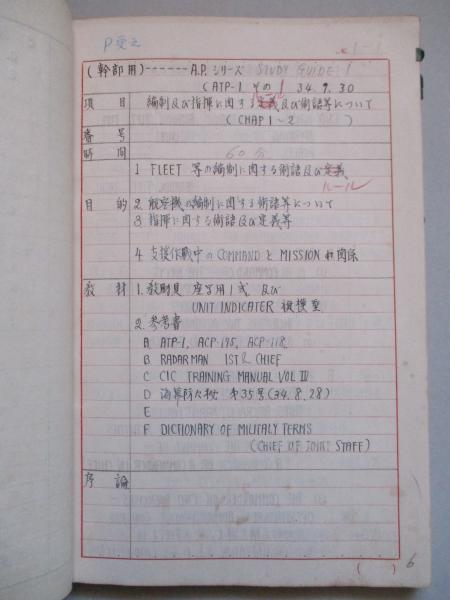 P
1-1
(幹部用)------A.P.シリーズ STUDY GUIDE 1
(ATP-1 その1 34.9.30
項目 編制及び指揮に関する定義及び術語等について
ルール
(CHAP 1~2 )
番号
時間 60分
1 FLEET 等の編制に関する術語及び定義
ルール
目的 2. 航空機の編制に関する術語等について
3 指揮に関する術語及び定義等
4. 支援作戦中のCOMMAND と MISSION の関係
教材 1. 教助具 座学用1式 及び
UNIT INDICATER 模型
2. 参考書
A ATP-1, ACP-175, ACP-118
B RADARMAN 1ST & CHIEF
C CIC TRAINING MANUAL VOL III
D 海幕防 第35号(34.8.28)
E
F DICTIONARY OF MILITALY TERMS
(CHIEF OF JOINT STAFF)
序論
( )
6